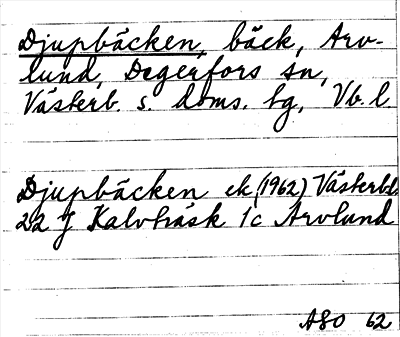 Djupbäcken, bäck, Arv-
lund, Degerfors sn,
Västerb. s. doms. tg, Vb. l
Djupbäcken ek (1962) Västerb.
22 J Kalvträsk 1c Arvlund
ASO 62